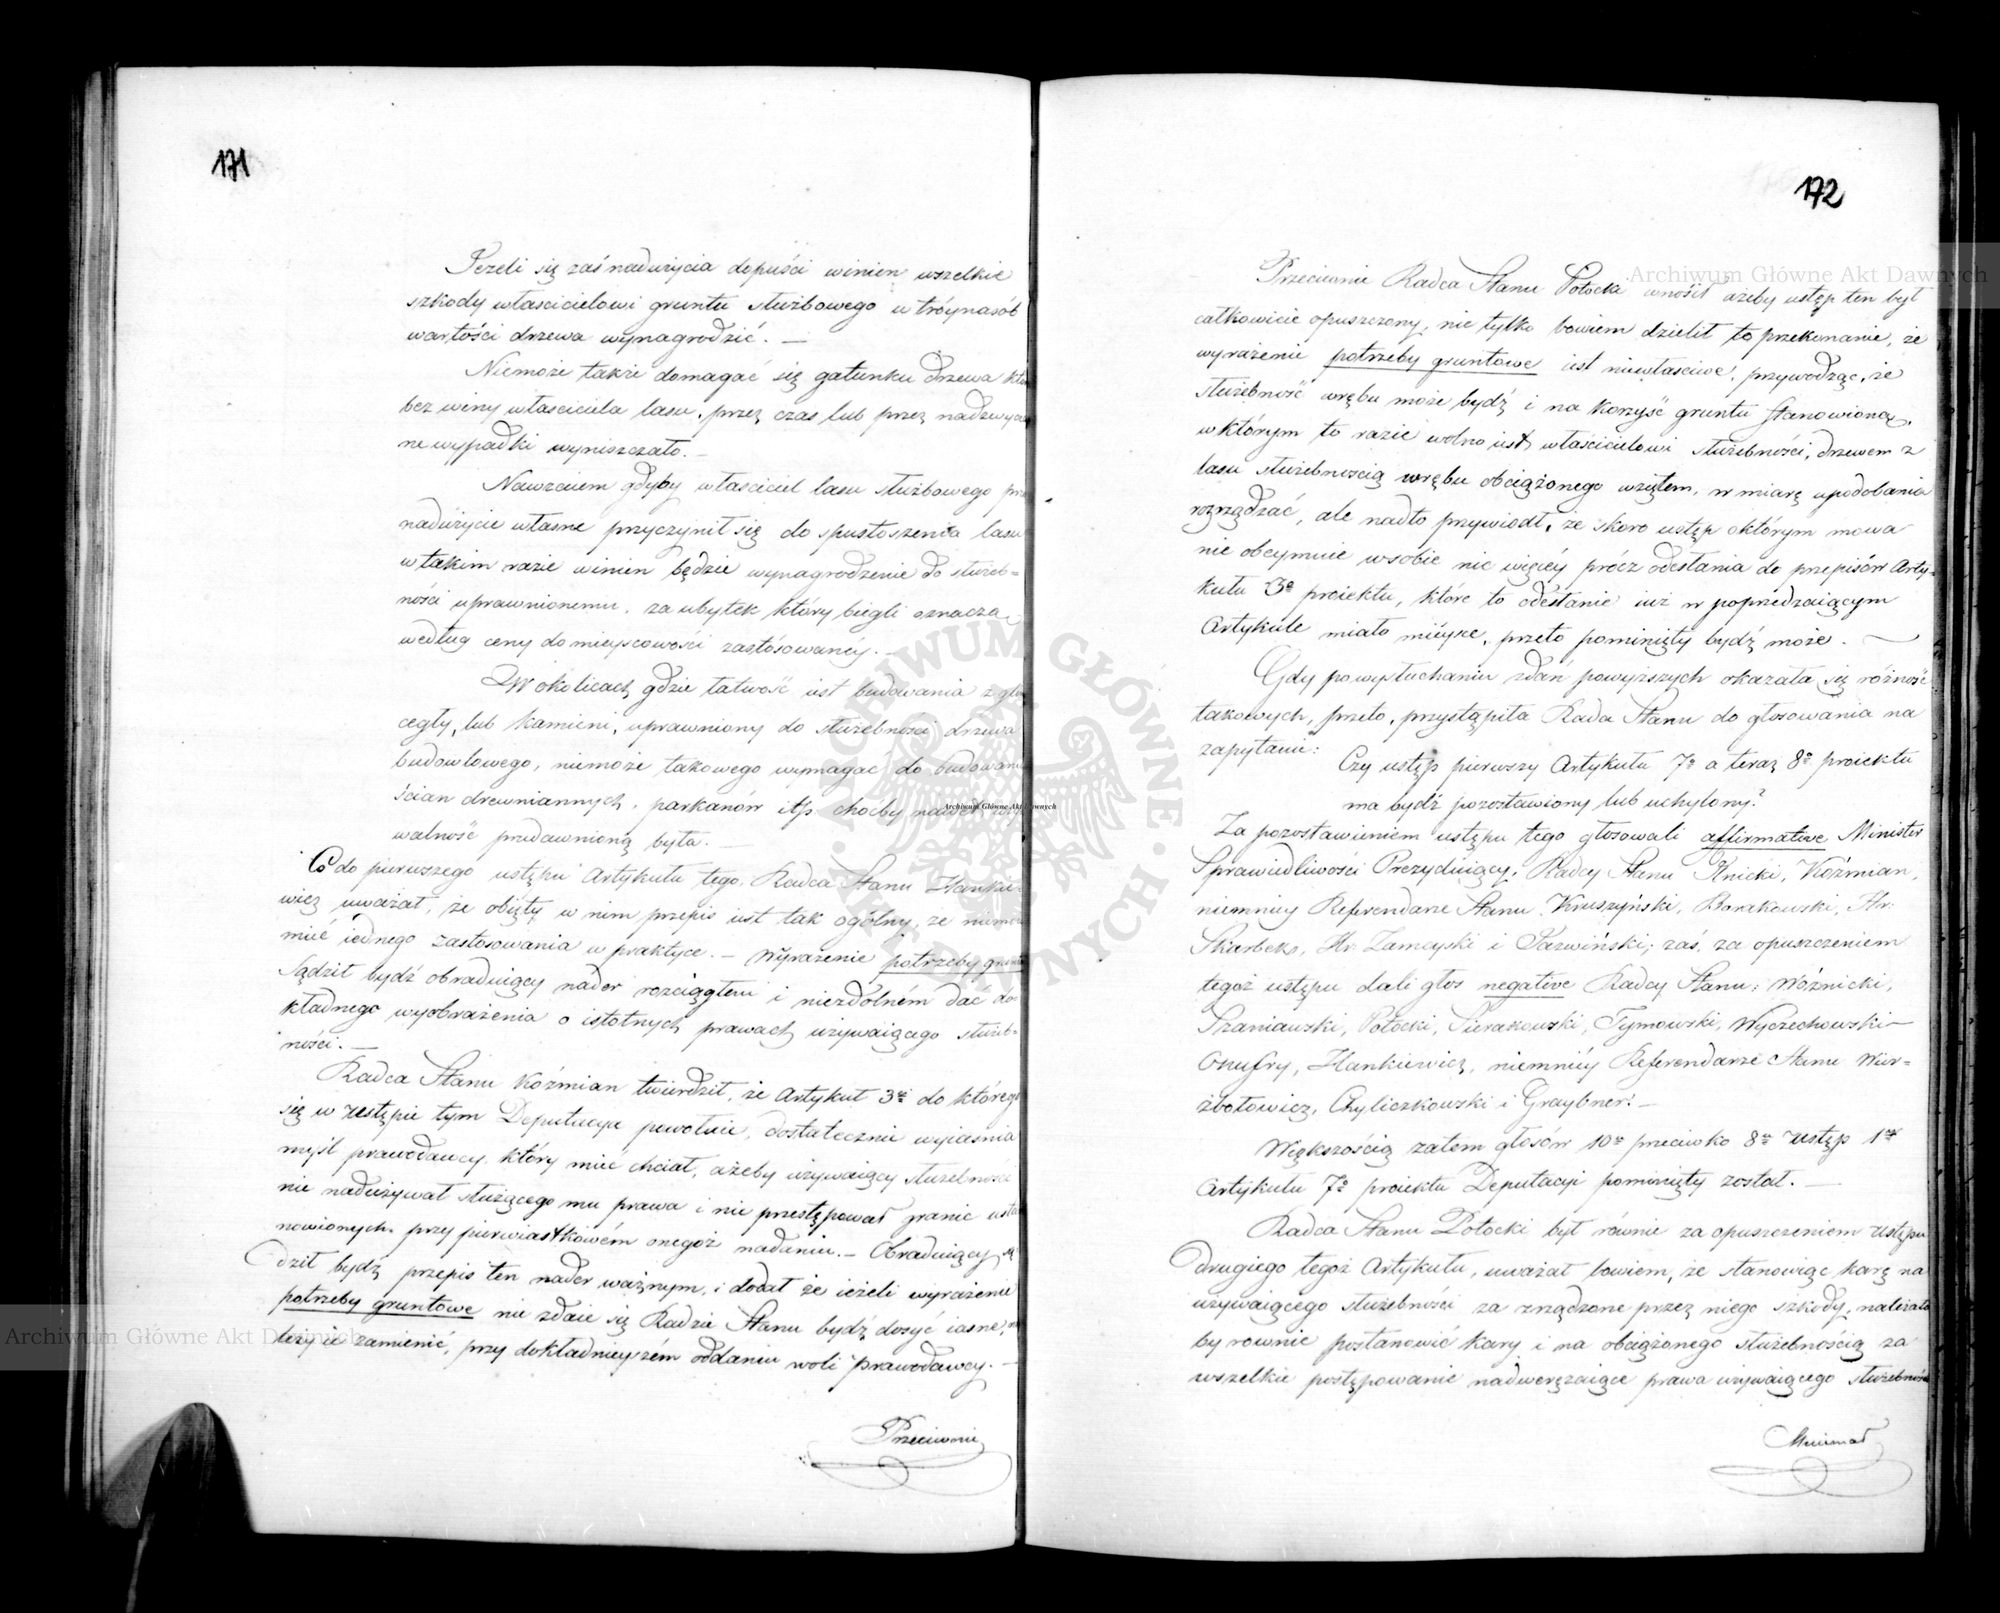 171
Jeżeli się zaś nadużycia dopuści winien wszelkie
szkody właścicielowi gruntu służbowego w trójnasób
wartości drzewa wynagrodzić. —
Niemoże także domagać się gatunku drzewa
bez winy właściciela lasu, przez czas lub przez
ne wypadki wyniszczało. —
Nawzaiem gdyby właściciel lasu służbowego
nadużycie własne przyczynił się do spustoszenia lasu
w takim razie winien będzie wynagrodzenie do służeb=
ności uprawnionemu, za ubytek który biegli oznaczą
według ceny do mieyscowości zastósowanéy. —
W okolicach gdzie łatwość iest budowania z
cegły, lub kamieni, uprawniony do służebności drzewa
budowlowego, niemoże takowego wymagać do
ścian drewniannych, parkanów itp choćby nawet
walność przedawnioną była. —
Co do pierwszego ustępu Artykułu tego, Radca Stanu Hankie-
wicz uważał, że obięty w nim przepis iest tak ogólny, że
mieć iednego zastosowania w praktyce. — Wyrażenie potrzeby
sądził bydź obraduiący nader rozciągłem i niezdólném dać do-
kładnego wyobrażenia o istotnych prawach używaiącego służeb-
ności. —
Radca Stanu Koźmian twierdził, że Artykuł 3ci do którego
się w ustępie tym Deputacya powołuie, dostatecznie wyiaśnia
myśl prawodawcy, który mieć chciał, ażeby używaiący służebności
nie nadużywał służącego mu prawa i nie przestępował granic
nowionych przy pierwiastkowém onegoż nadaniu. — Obraduiący
dził bydź przepis ten nader ważnym, i dodał że ieżeli wyrażenie
potrzeby gruntowe nie zdaie się Radzie Stanu bydź dosyć iasne,
leży ie zamienić, przy dokładnieyszém oddaniu woli prawodawcy. —
Przeciwnie
172
Przeciwnie Radca Stanu Potocki wnosił ażeby ustęp ten był
całkowicie opuszczony, nie tylko bowiem dzielił to przekonanie, że
wyrażenie potrzeby gruntowe iest niewłaściwe, przywodząc, że
służebność wrębu może bydź i na korzyść gruntu stanowioną,
w którym to razie wolno iest właścicielowi służebności, drzewem z
lasu służebnością wrębu obciążonego wziętem, w miarę upodobania
rozrządzać, ale nadto przywiodł, że skoro ustęp o którym mowa
nie obeymuie w sobie nic więcéy prócz odesłania do przepisów Arty-
kułu 3o proiektu, które to odesłanie iuż w poprzedzaiącym
Artykule miało mieysce, przeto pominięty bydź może. —
Gdy po wysłuchaniu zdań powyższych okazała się różność
takowych, przeto, przystąpiła Rada Stanu do głosowania na
zapytanie:
Czy ustęp pierwszy Artykułu 7o a teraz 8o proiektu
ma bydź pozostawiony lub uchylony?
Za pozostawieniem ustępu tego głosowali affirmative Minister
Sprawiedliwości Prezyduiący, Radcy Stanu Knicki, Koźmian,
niemniey Referendarze Stanu Kruszyński, Borakowski, Hr:
Skarbek, Hr. Zamoyski i Parwiński; zaś, za opuszczeniem
tegoż ustępu dali głos negative Radcy Stanu: Woźnicki,
Szaniawski, Potocki, Sierakowski, Tymowski, Wyczechowski
Onufry, Hankiewicz, niemniéy Referendarze Stanu Wier-
zbołowicz, Chyliczkowski i Graybner. —
Większością zatem głosów 10u przeciwko 8u ustęp 1szy
Artykułu 7o proiektu Deputacyi pominięty został. —
Radca Stanu Potocki był równie za opuszczeniem ustępu
drugiego tegoż Artykułu, uważał bowiem, że stanowiąc karę na
używaiącego służebności za zrządzone przez niego szkody, należało
by rownie postanowić kary i na obciążonego służebnością za
wszelkie postępowanie nadwerężaiące prawa używaiącego służebności
Mniemał
Archiwum Główne Akt Dawnych
Archiwum Główne Akt Dawnych
Archiwum Główne Akt Dawnych
ARCHIWUM GŁÓWNE AKT DAWNYCH